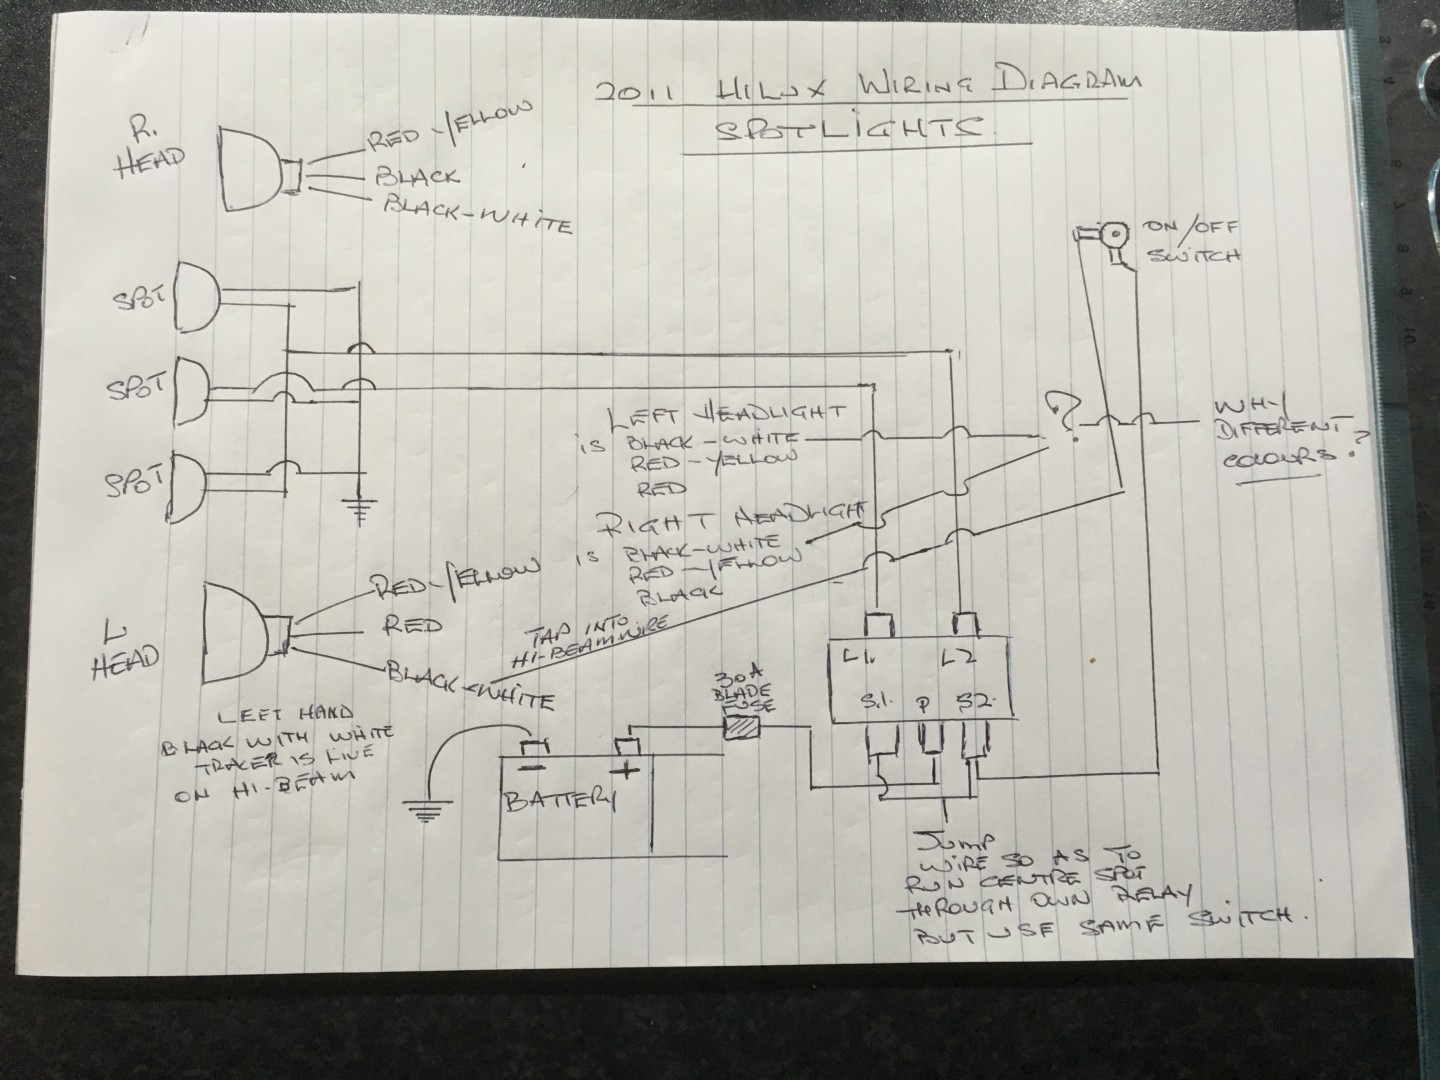 2011 HILUX WIRING DIAGRAM
SPOTLIGHTS.
R.
HEAD
RED-YELLOW
BLACK
BLACK-WHITE
ON/OFF
SWITCH
SPOT
SPOT
SPOT
LEFT HEADLIGHT
is BLACK-WHITE
RED-YELLOW
RED
?
WHY
DIFFERENT
COLOURS?
RIGHT HEADLIGHT
is BLACK-WHITE
RED-YELLOW
BLACK
L
HEAD
RED-YELLOW
RED
BLACK-WHITE
TAP INTO
HI-BEAM WIRE
LEFT HAND
BLACK WITH WHITE
TRACER IS LIVE
ON HI-BEAM
30A
BLADE
FUSE
L1.
L2
S.1.
P
S2.
-
+
BATTERY
JUMP
WIRE SO AS TO
RUN CENTRE SPOT
THROUGH OWN RELAY
BUT USE SAME SWITCH.